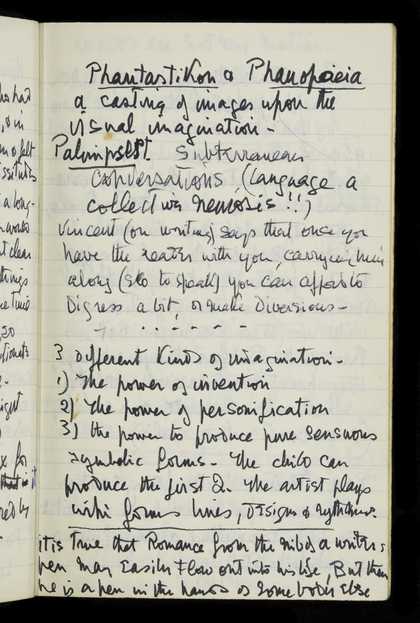 had
in
felt
a long-
clear
things
time
30
ight
for
it
red by
Phantastikon & Phanopoeia
a casting of images upon the
visual imagination -
Palimpsest. Subterranean
conversations, (language a
collective nemosis!!)
Vincent (on writing) says that once you
have the reader with you, carrying him
along (so to speak) you can afford to
Digress a bit, or make Diversions -
3 Different Kinds of imagination -
1) The power of invention
2) The power of personification
3) the power to produce pure sensuous
symbolic forms - The child can
produce the first 2. The artist plays
with forms lines, Designs & rythms.
it is True that Romance from the nib of a writers
pen may Easily Flow out into his life, But then
he is a pen in the hands of Somebodies Else